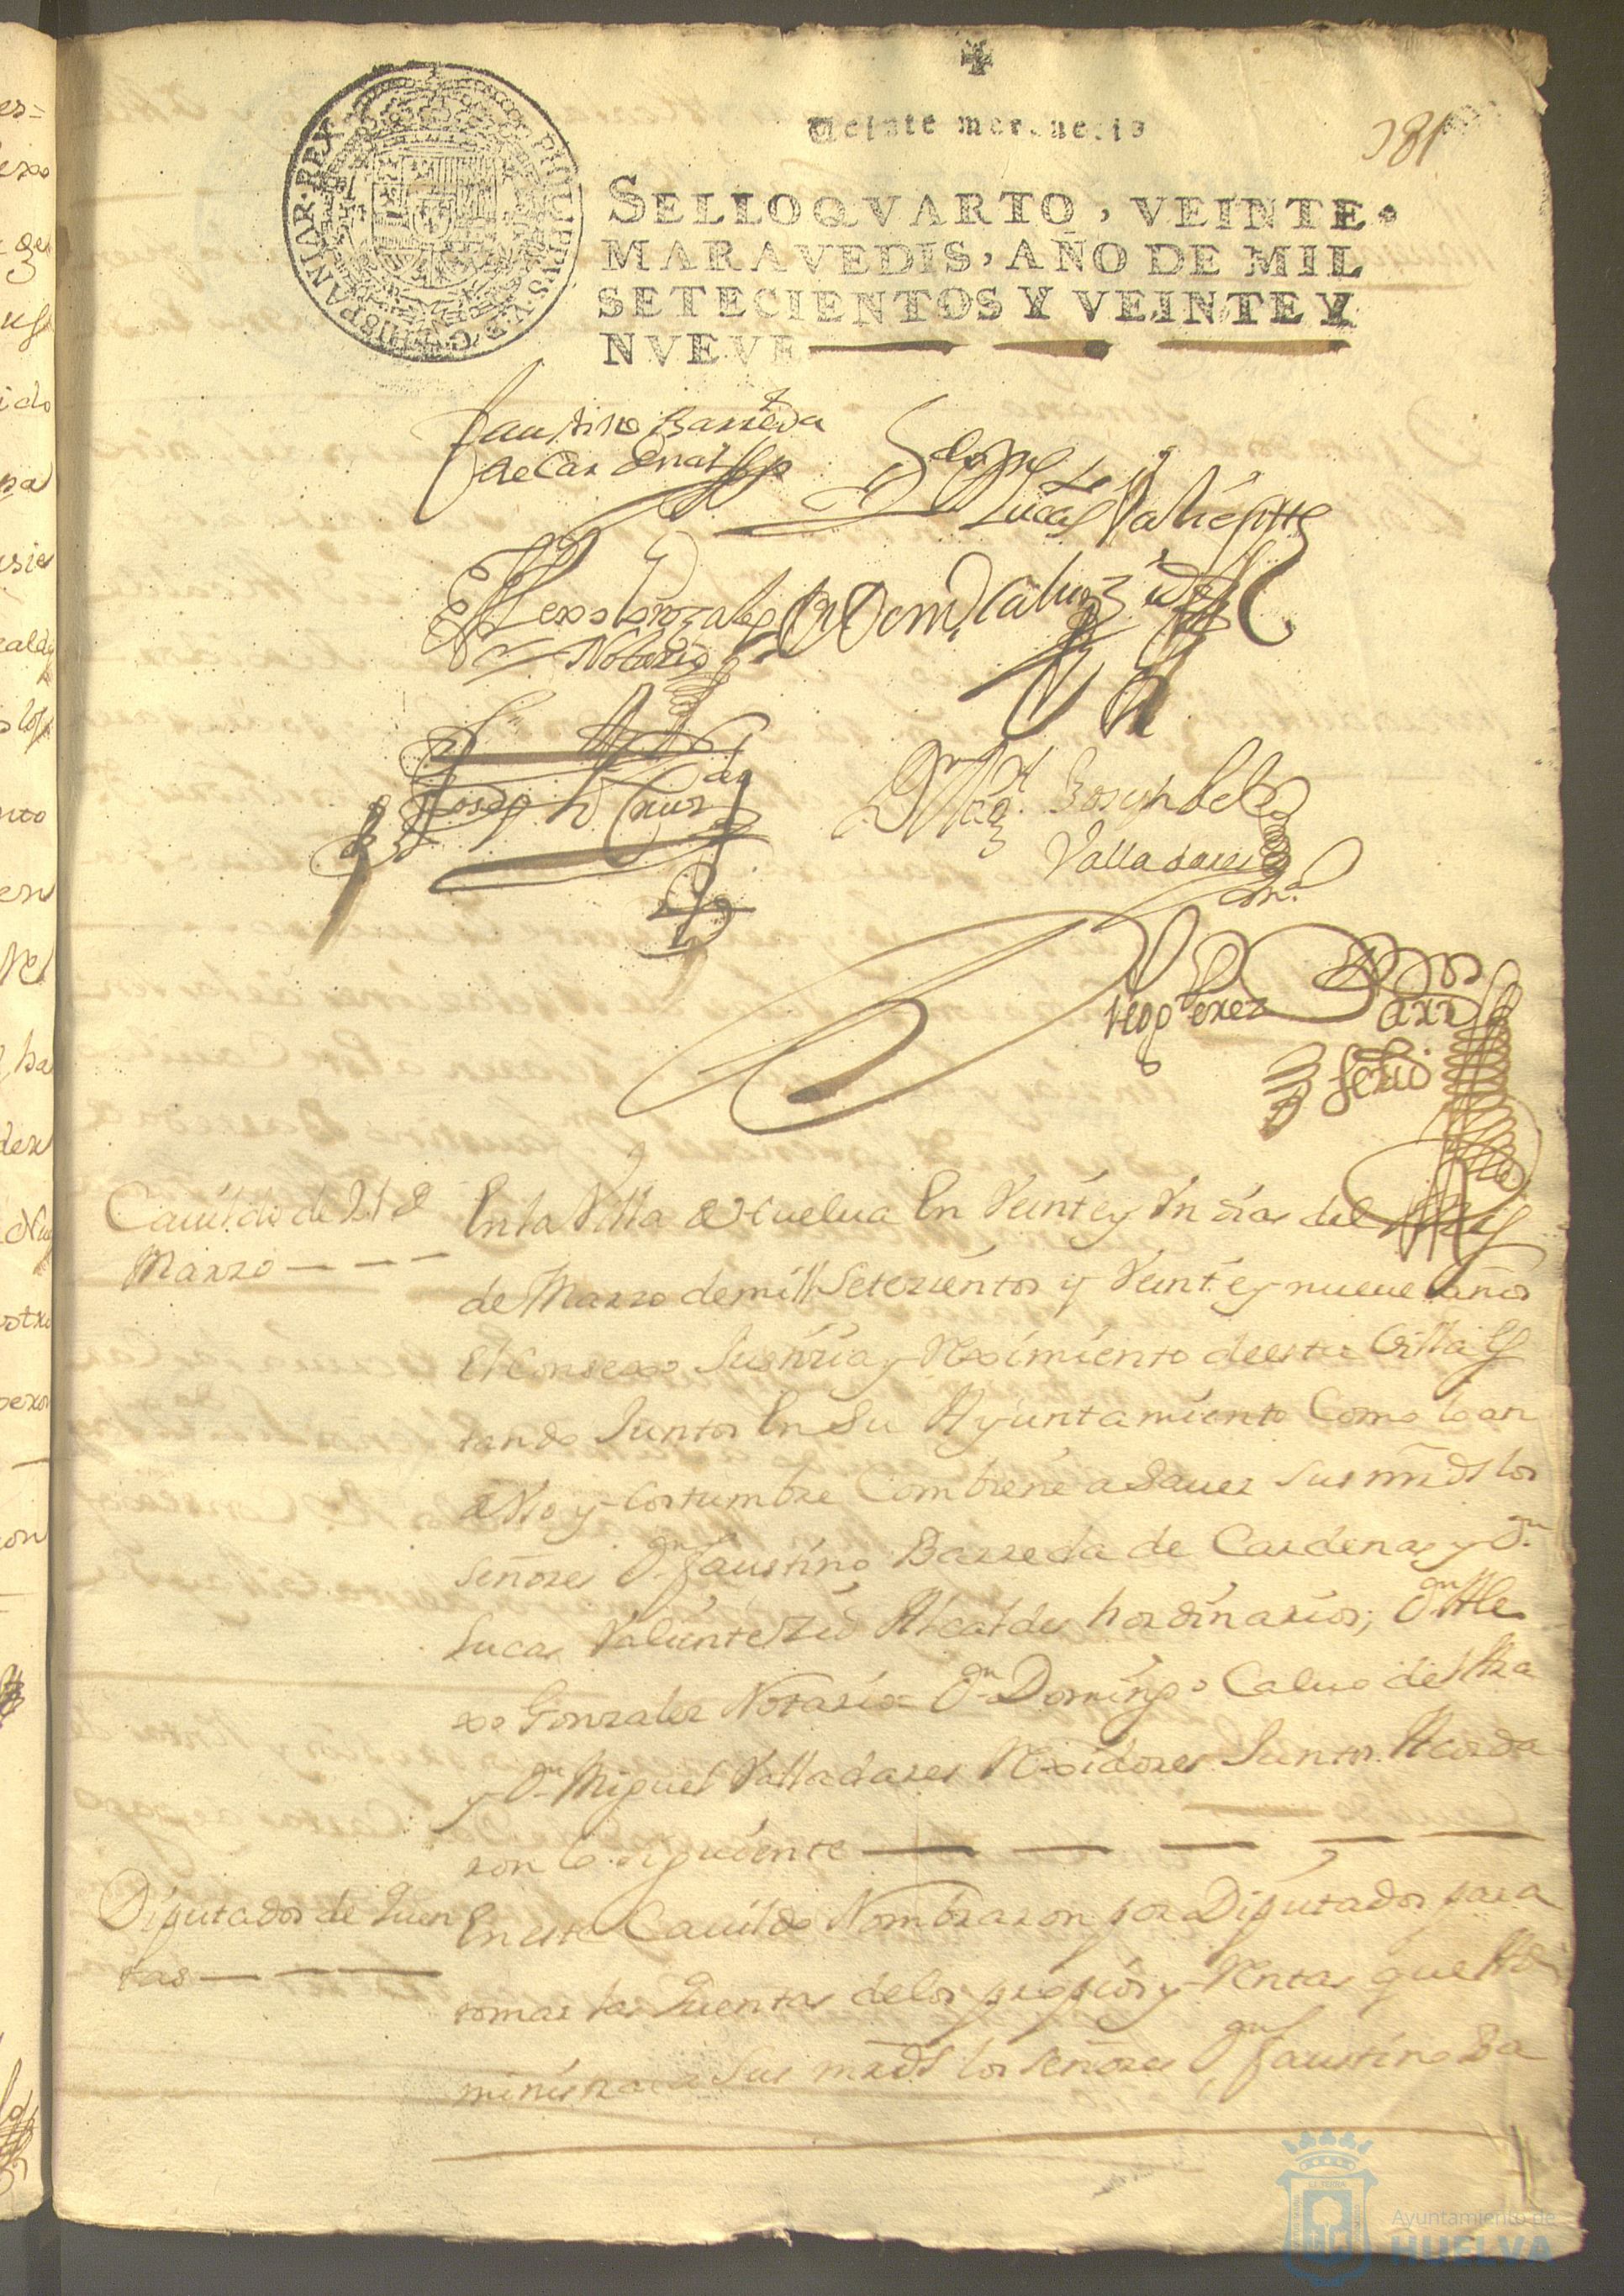 Veinte mer.uecis
381
PHILIPPVS.V.D.G.HISPANIAR.REX
SELLO QVARTO, VEINTE
MARAVEDIS, AÑO DE MIL
SETECIENTOS Y VEINTE Y
NVEVE
Faustino Barreda
de Cardenas
Lucas Valiente
Alexo Gonzales
Notario
Domº Calvo
Joseph
Dn Migl Joseph
Valladares
Diego Perez
Cauildo de 21 d
Marzo
En la Villa de Huelua En Veinte y Vn dias del Mes
de Marzo de mill Setezientos y Veinte y nueue años
El Consexo Justizia y Reximiento de esta Villa Es
tando Juntos En Su Ayuntamiento Como lo an
de Vso y Costumbre Combiene a Sauer Sus mrds los
Señores Dn Faustino Barreda de Cardenas y Dn
Lucas Valiente Alcaldes hordinarios; Dn Ale
xo Gonzalez Notario Dn Domingo Calvo
y Dn Miguel Valladares Rexidores Juntos Acorda
ron lo siguiente
Diputados de Quen
tas
En este Cauildo Nombraron por Diputados para
tomar las Quentas de los propios y Rentas que
ministra a Sus mrds los Señores Dn Faustino Ba
Ayuntamiento de
HUELVA